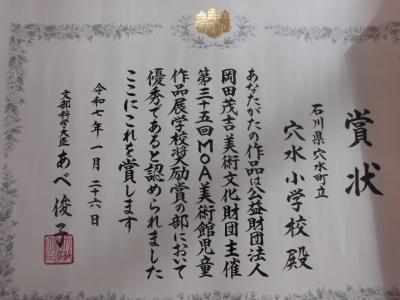 賞状
石川県穴水町立
穴水小学校 殿
あなたがたの作品は公益財団法人
岡田茂吉美術文化財団主催
第三十五回MOA美術館児童
作品展学校奨励賞の部において
優秀であると認められました
ここにこれを賞します
令和七年一月二十六日
文部科学大臣 あべ 俊子